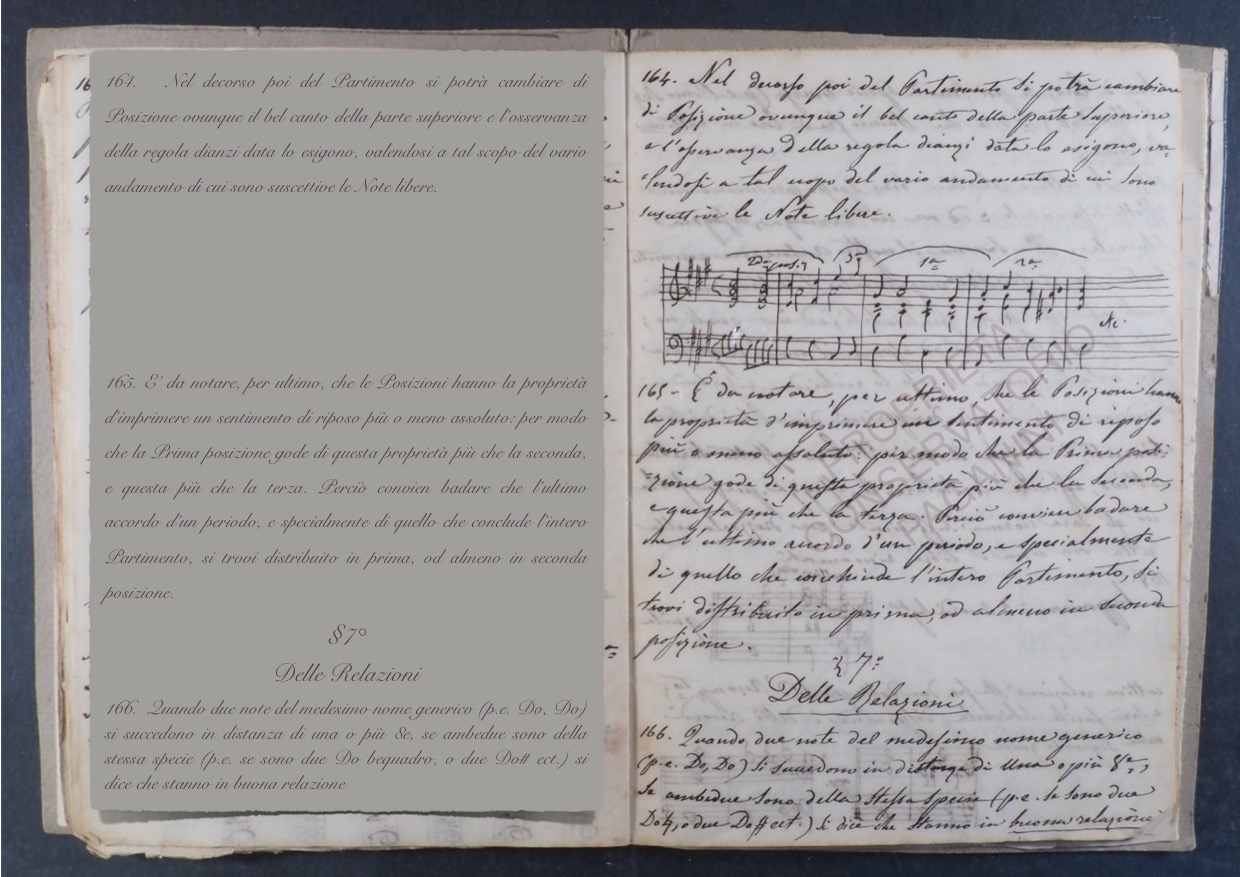 164. Nel decorso poi del Partimento si potrà cambiare di
Posizione ovunque il bel canto della parte superiore e l'osservanza
della regola dianzi data lo esigono, valendosi a tal scopo del vario
andamento di cui sono suscettive le Note libere.
165. E' da notare, per ultimo, che le Posizioni hanno la proprietà
d'imprimere un sentimento di riposo più o meno assoluto: per modo
che la Prima posizione gode di questa proprietà più che la seconda,
e questa più che la terza. Perciò convien badare che l'ultimo
accordo d'un periodo, e specialmente di quello che conclude l'intero
Partimento, si trovi distribuito in prima, od almeno in seconda
posizione.
§7°
Delle Relazioni
166. Quando due note del medesimo nome generico (p.e. Do, Do)
si succedono in distanza di una o più 8e, se ambedue sono della
stessa specie (p.e. se sono due Do bequadro, o due Do# ect.) si
dice che stanno in buona relazione
164. Nel decorso poi del Partimento si potrà cambiare
di Posizione ovunque il bel canto della parte superiore,
e l'osservanza della regola dianzi data lo esigono, va-
lendosi a tal uopo del vario andamento di cui sono
suscettive le Note libere.
2da posiz 3a 1a 2a
etc.
165- È da notare, per ultimo, che le Posizioni hanno
la proprietà d'imprimere un sentimento di riposo
più o meno assoluto: per modo che la Prima posi-
zione gode di questa proprietà più che la seconda,
e questa più che la terza. Perciò convien badare
che l'ultimo accordo d'un periodo, e specialmente
di quello che conchiude l'intero Partimento, si
trovi distribuito in prima, od almeno in seconda
posizione.
§ 7°
Delle Relazioni
166. Quando due note del medesimo nome generico
(p.e. Do, Do) si succedono in distanza di una o più 8e,
se ambedue sono della stessa specie (p.e. se sono due
Do♮, o due Do# ect.) si dice che stanno in buona relazione
PROPRIETÀ
CONSERVATORIO
PAGANINI